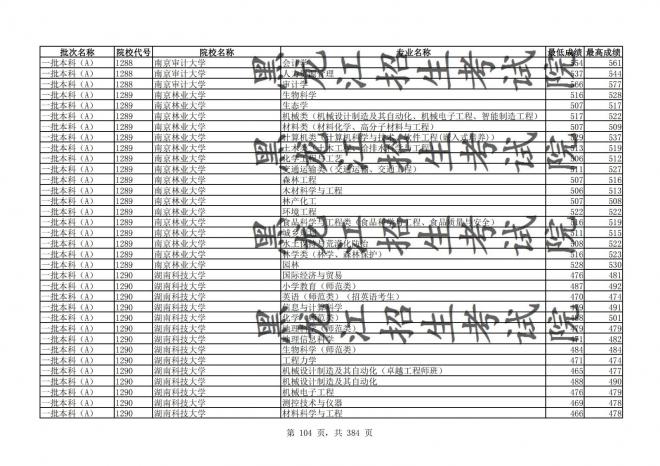 批次名称 院校代号 院校名称 专业名称 最低成绩 最高成绩
一批本科（A） 1288 南京审计大学 会计学 554 561
一批本科（A） 1288 南京审计大学 537 544
一批本科（A） 1288 南京审计大学 审计学 566 577
一批本科（A） 1289 南京林业大学 生物科学 516 528
一批本科（A） 1289 南京林业大学 生态学 507 517
一批本科（A） 1289 南京林业大学 机械类（机械设计制造及其自动化、机械电子工程、智能制造工程） 517 522
一批本科（A） 1289 南京林业大学 材料类（材料化学、高分子材料与工程） 507 509
一批本科（A） 1289 南京林业大学 529 537
一批本科（A） 1289 南京林业大学 513 519
一批本科（A） 1289 南京林业大学 506 512
一批本科（A） 1289 南京林业大学 交通运输类（交通运输、交通工程） 511 527
一批本科（A） 1289 南京林业大学 森林工程 507 516
一批本科（A） 1289 南京林业大学 木材科学与工程 506 513
一批本科（A） 1289 南京林业大学 林产化工 507 508
一批本科（A） 1289 南京林业大学 环境工程 522 522
一批本科（A） 1289 南京林业大学 516 519
一批本科（A） 1289 南京林业大学 511 515
一批本科（A） 1289 南京林业大学 508 522
一批本科（A） 1289 南京林业大学 林学类（林学、森林保护） 516 523
一批本科（A） 1289 南京林业大学 园林 528 530
一批本科（A） 1290 湖南科技大学 国际经济与贸易 476 481
一批本科（A） 1290 湖南科技大学 小学教育（师范类） 487 492
一批本科（A） 1290 湖南科技大学 英语（师范类）（招英语考生） 470 474
一批本科（A） 1290 湖南科技大学 信息与计算科学 491
一批本科（A） 1290 湖南科技大学 化学（师范类） 501
一批本科（A） 1290 湖南科技大学 地理科学（师范类） 479 479
一批本科（A） 1290 湖南科技大学 地理信息科学 471 482
一批本科（A） 1290 湖南科技大学 生物科学（师范类） 484 484
一批本科（A） 1290 湖南科技大学 工程力学 471 474
一批本科（A） 1290 湖南科技大学 机械设计制造及其自动化（卓越工程师班） 465 477
一批本科（A） 1290 湖南科技大学 机械设计制造及其自动化 488 490
一批本科（A） 1290 湖南科技大学 机械电子工程 476 479
一批本科（A） 1290 湖南科技大学 测控技术与仪器 469 478
一批本科（A） 1290 湖南科技大学 材料科学与工程 466 478
黑龙江招生考试院
黑龙江招生考试院
第 104 页，共 384 页